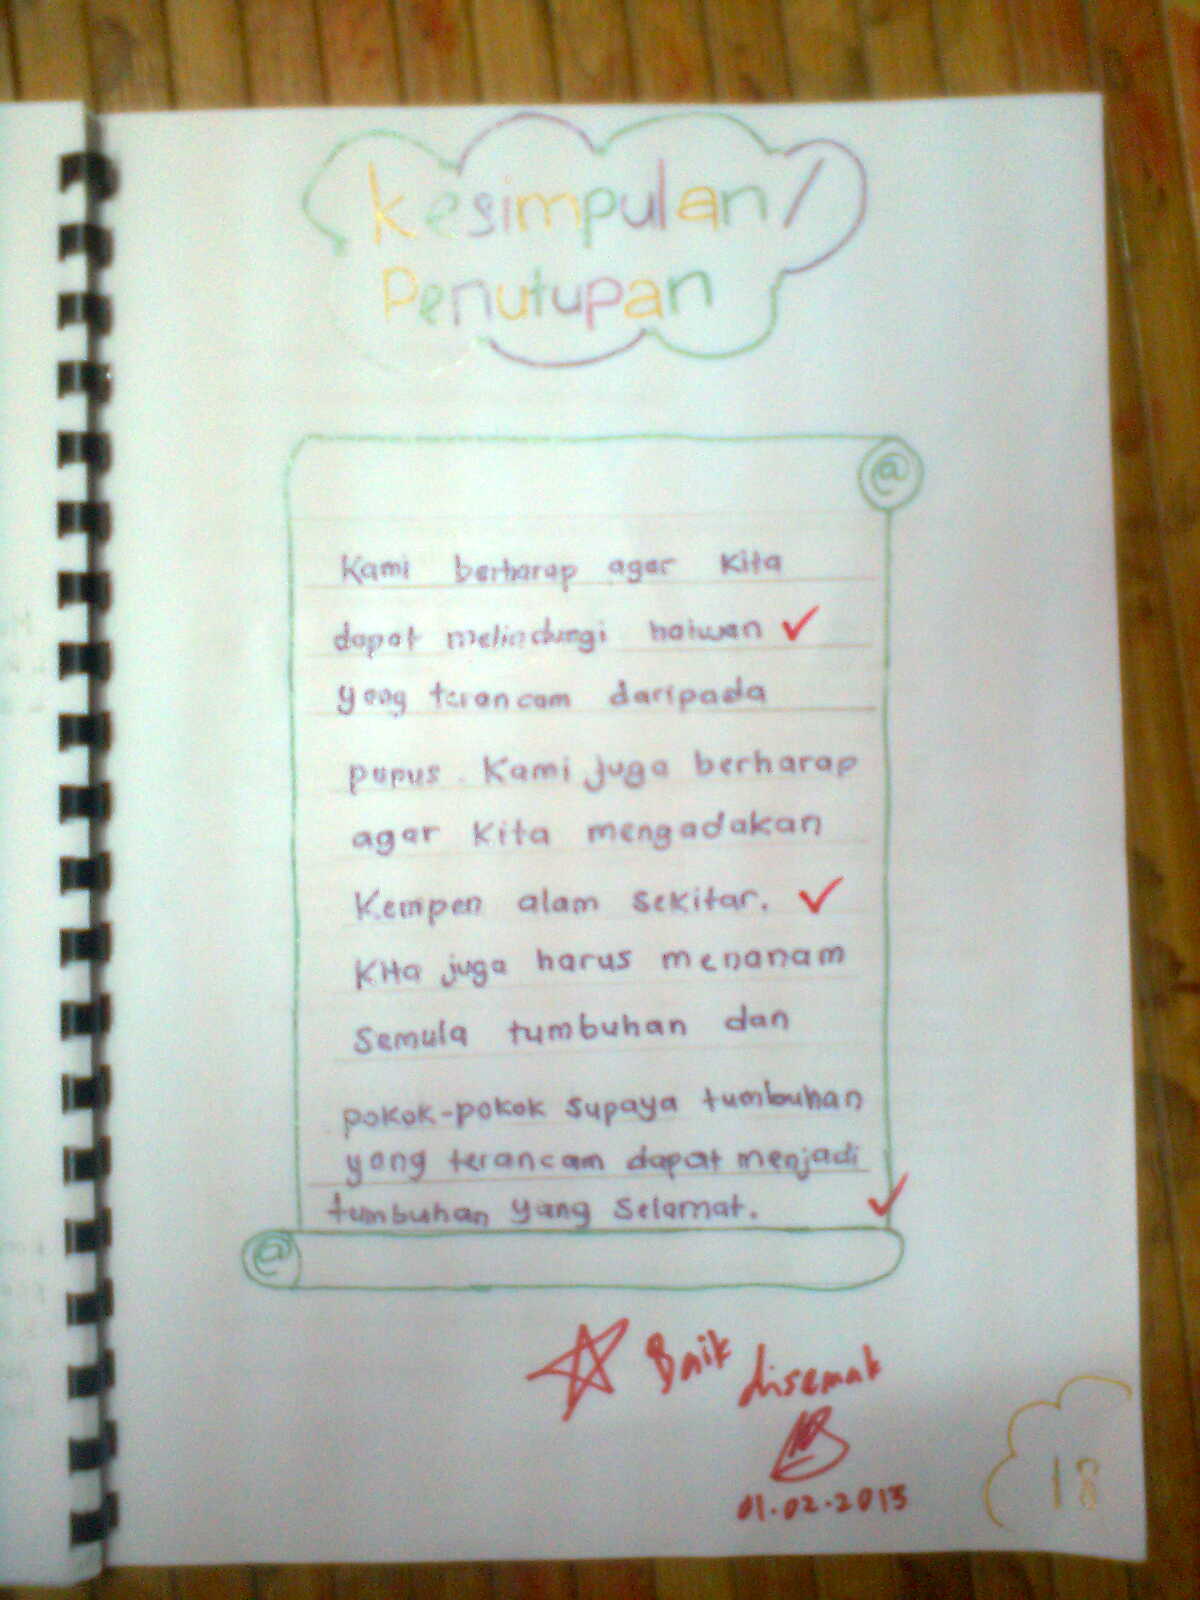 Kesimpulan/
Penutupan
@
Kami berharap agar kita
dapat melindungi haiwan
yang terancam daripada
pupus. Kami juga berharap
agar kita mengadakan
Kempen alam sekitar.
Kita juga harus menanam
semula tumbuhan dan
pokok-pokok supaya tumbuhan
yang terancam dapat menjadi
tumbuhan yang selamat.
@
Baik
disemak
01.02.2013
18